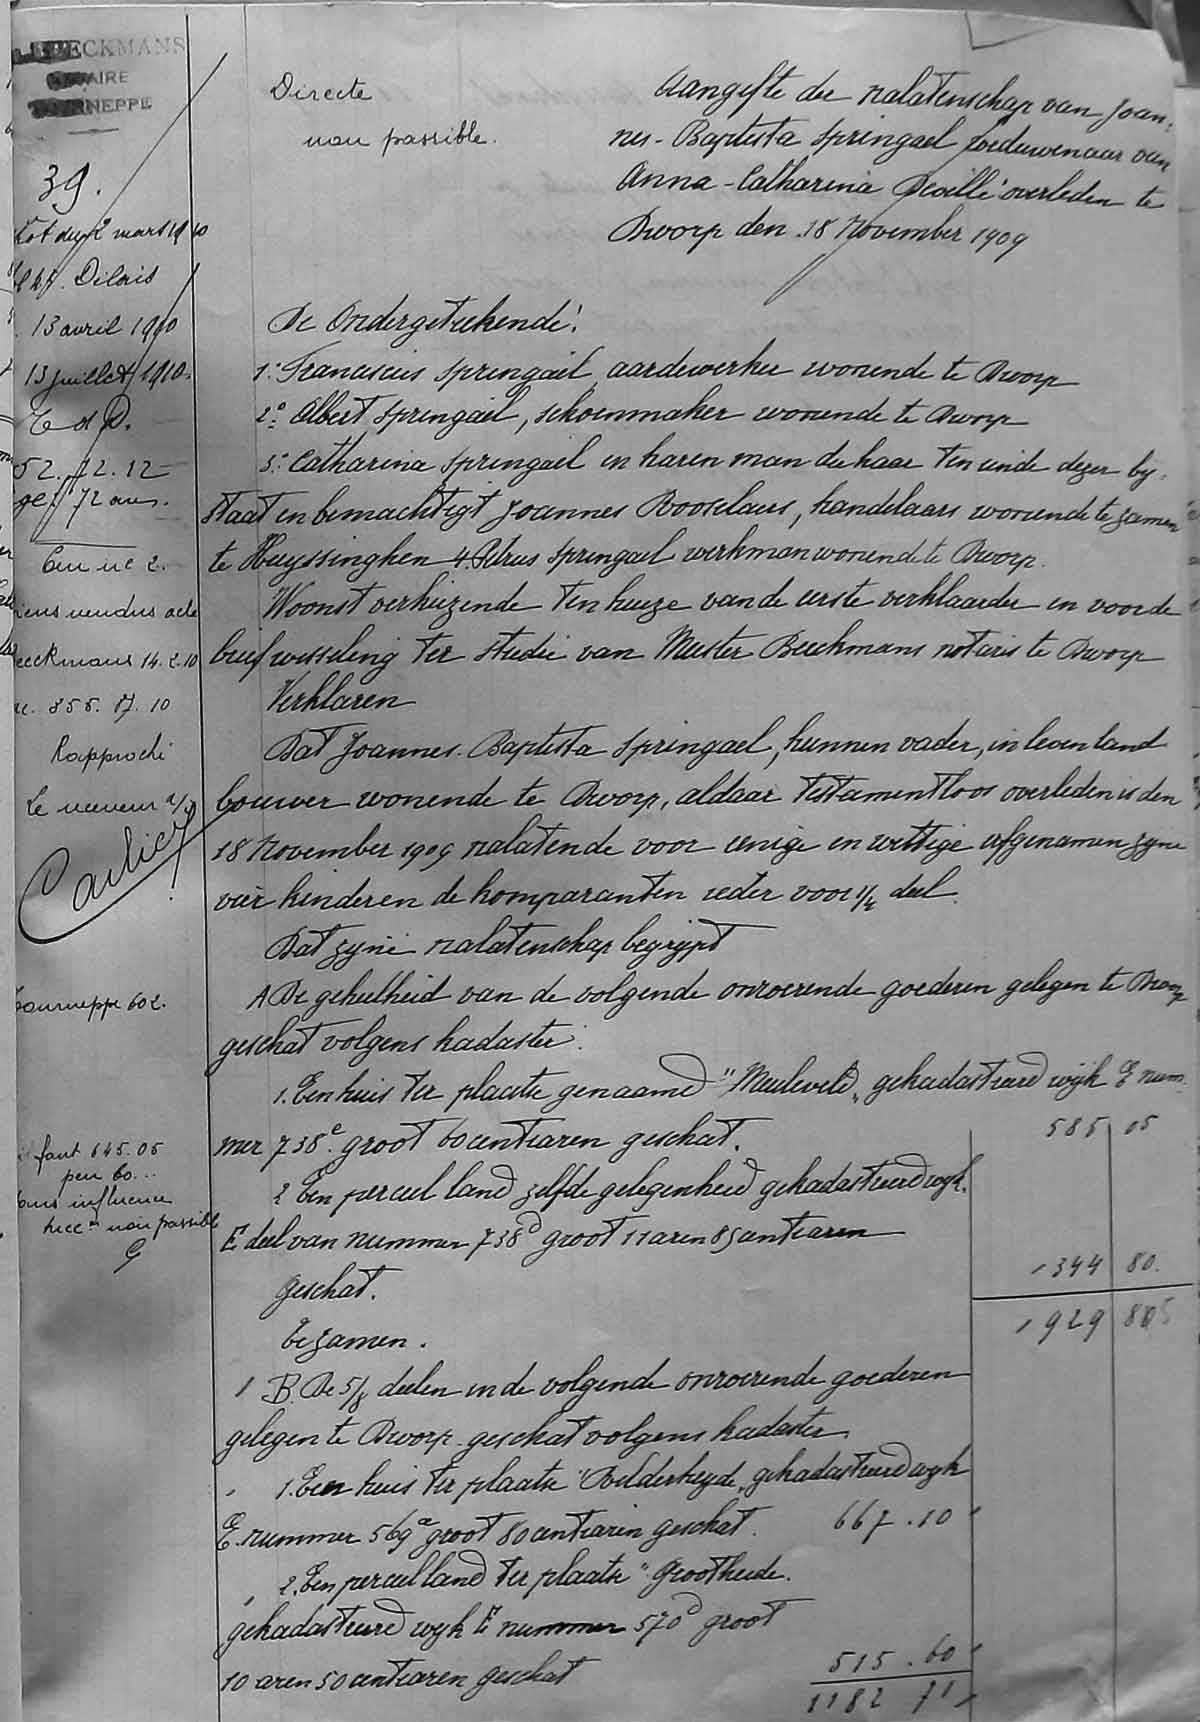 BEECKMANS
NOTAIRE
TOURNEPPE
39.
mars 1910
Delais
13 avril 1910
13 juillet 1910
T d D.
52. 12. 12
72 ans.
Cm ne 2.
biens vendus acte
Beeckmans 14.2.10
355. 87. 10
Rapproché
Le receveur a/i
Carlier
Tourneppe 602.
faut 645.05
peu 60...
sans influence
succ.on non passible
Directe
non passible.
Aangifte der nalatenschap van Joan-
nes-Baptista Springael weduwenaar van
Anna-Catharina Deville overleden te
Dworp den 18 November 1909
De Ondergeteekende:
1° Franciscus Springael, aardewerker wonende te Dworp
2° Albert Springael, schoenmaker wonende te Dworp
3° Catharina Springael en haren man die haar ten einde dezer by-
staat en bemachtigt Joannes Rooselaers, handelaars wonende te zamen
te Huyssinghen 4. Petrus Springael werkman wonende te Dworp.
Woonst verkiezende ten huize van de eerste verklaarder en voor de
briefwisseling ter studie van Meester Beeckmans notaris te Dworp
Verklaren
Dat Joannes-Baptista Springael, hunnen vader, in leven land
bouwer wonende te Dworp, aldaar testamentloos overleden is den
18 November 1909 nalatende voor eenige en wettige afgenamen zyne
vier kinderen de komparanten ieder voor 1/4 deel.
Dat zyne nalatenschap begrypt
A De geheelheid van de volgende onroerende goederen gelegen te Dworp
geschat volgens kadaster:
1. Een huis ter plaatse genaamd "Meuleveld" gekadastreerd wyk E num-
mer 738e groot 60 centiaren geschat. 585 05
2 Een perceel land zelfde gelegenheid gekadastreerd wyk
E deel van nummer 738d groot 11 aren 85 centiaren
geschat. 1344 80.
te zamen. 1929 85
B. De 5/8 deelen in de volgende onroerende goederen
gelegen te Dworp geschat volgens kadaster
1. Een huis ter plaatse "Belderheyde" gekadastreerd wyk
E. nummer 569a groot 80 centiaren geschat. 667.10
2. Een perceel land ter plaatse "Grootheide.
gekadastreerd wyk E nummer 570d groot
10 aren 50 centiaren geschat 515.60
1182 71